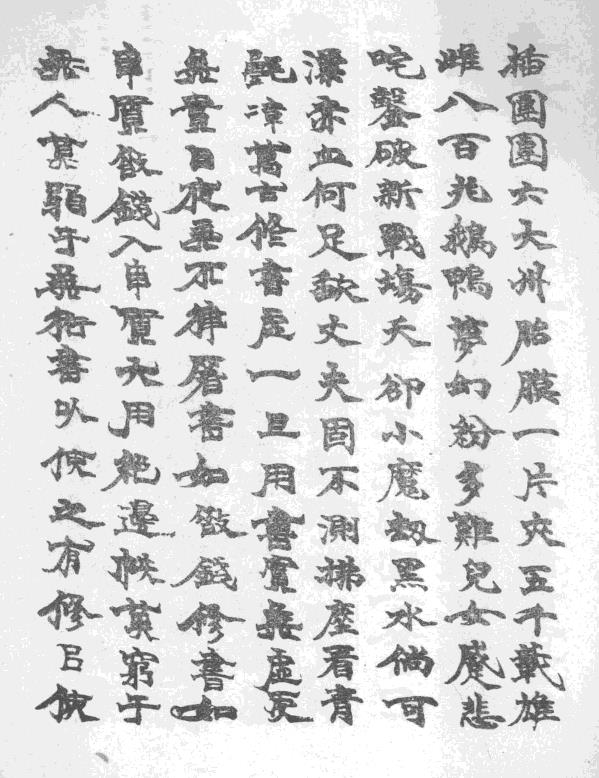 插團團六大州胎膜一片夾五千載雄
雌八百兆鵝鴨夢幻紛多難兒女感悲
咤鑿破新戰塲天卻小魔劫黑水倘可
瀑赤血何足歃丈夫固不測拂塵看青
氈漳萬古修書虛一旦用書實無虛更
無實日夜無不律屠書如斂錢修書如
串貫斂錢入串貫大用範邊帙莫窮于
無人莫弱于無術書以俟之有修己俟